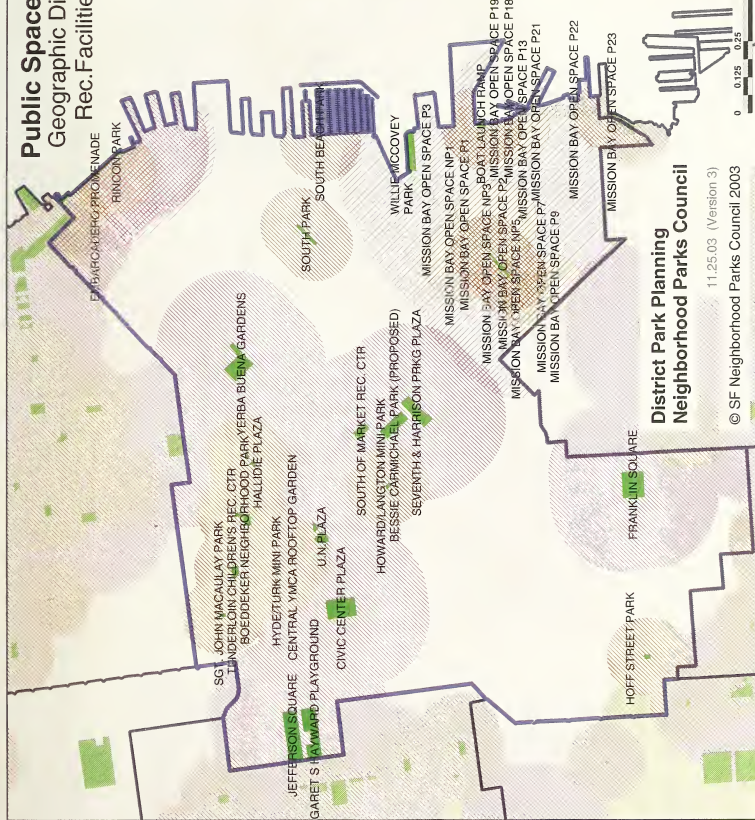 Public Space
Geographic Di
Rec.Facilitie
EMBARCADERO PROMENADE
RINCON PARK
SOUTH BEACH PARK
SOUTH PARK
WILLIE MCCOVEY
PARK
MISSION BAY OPEN SPACE P3
MISSION BAY OPEN SPACE NP1
MISSION BAY OPEN SPACE P1
BOAT LAUNCH RAMP
MISSION BAY OPEN SPACE P19
MISSION BAY OPEN SPACE P18
MISSION BAY OPEN SPACE NP3
MISSION BAY OPEN SPACE P2
MISSION BAY OPEN SPACE P13
MISSION BAY OPEN SPACE NP5
MISSION BAY OPEN SPACE P21
MISSION BAY OPEN SPACE P7
MISSION BAY OPEN SPACE P9
MISSION BAY OPEN SPACE P22
MISSION BAY OPEN SPACE P23
YERBA BUENA GARDENS
SGT. JOHN MACAULAY PARK
TENDERLOIN CHILDREN'S REC. CTR
BOEDDEKER NEIGHBORHOOD PARK
HALLIDIE PLAZA
HYDE/TURK MINI PARK
CENTRAL YMCA ROOFTOP GARDEN
U.N. PLAZA
CIVIC CENTER PLAZA
JEFFERSON SQUARE
GARET S HAYWARD PLAYGROUND
SOUTH OF MARKET REC. CTR
HOWARD/LANGTON MINI PARK
BESSIE CARMICHAEL PARK (PROPOSED)
SEVENTH & HARRISON PRKG PLAZA
FRANKLIN SQUARE
HOFF STREET PARK
District Park Planning
Neighborhood Parks Council
11.25.03 (Version 3)
© SF Neighborhood Parks Council 2003
0 0.125 0.25